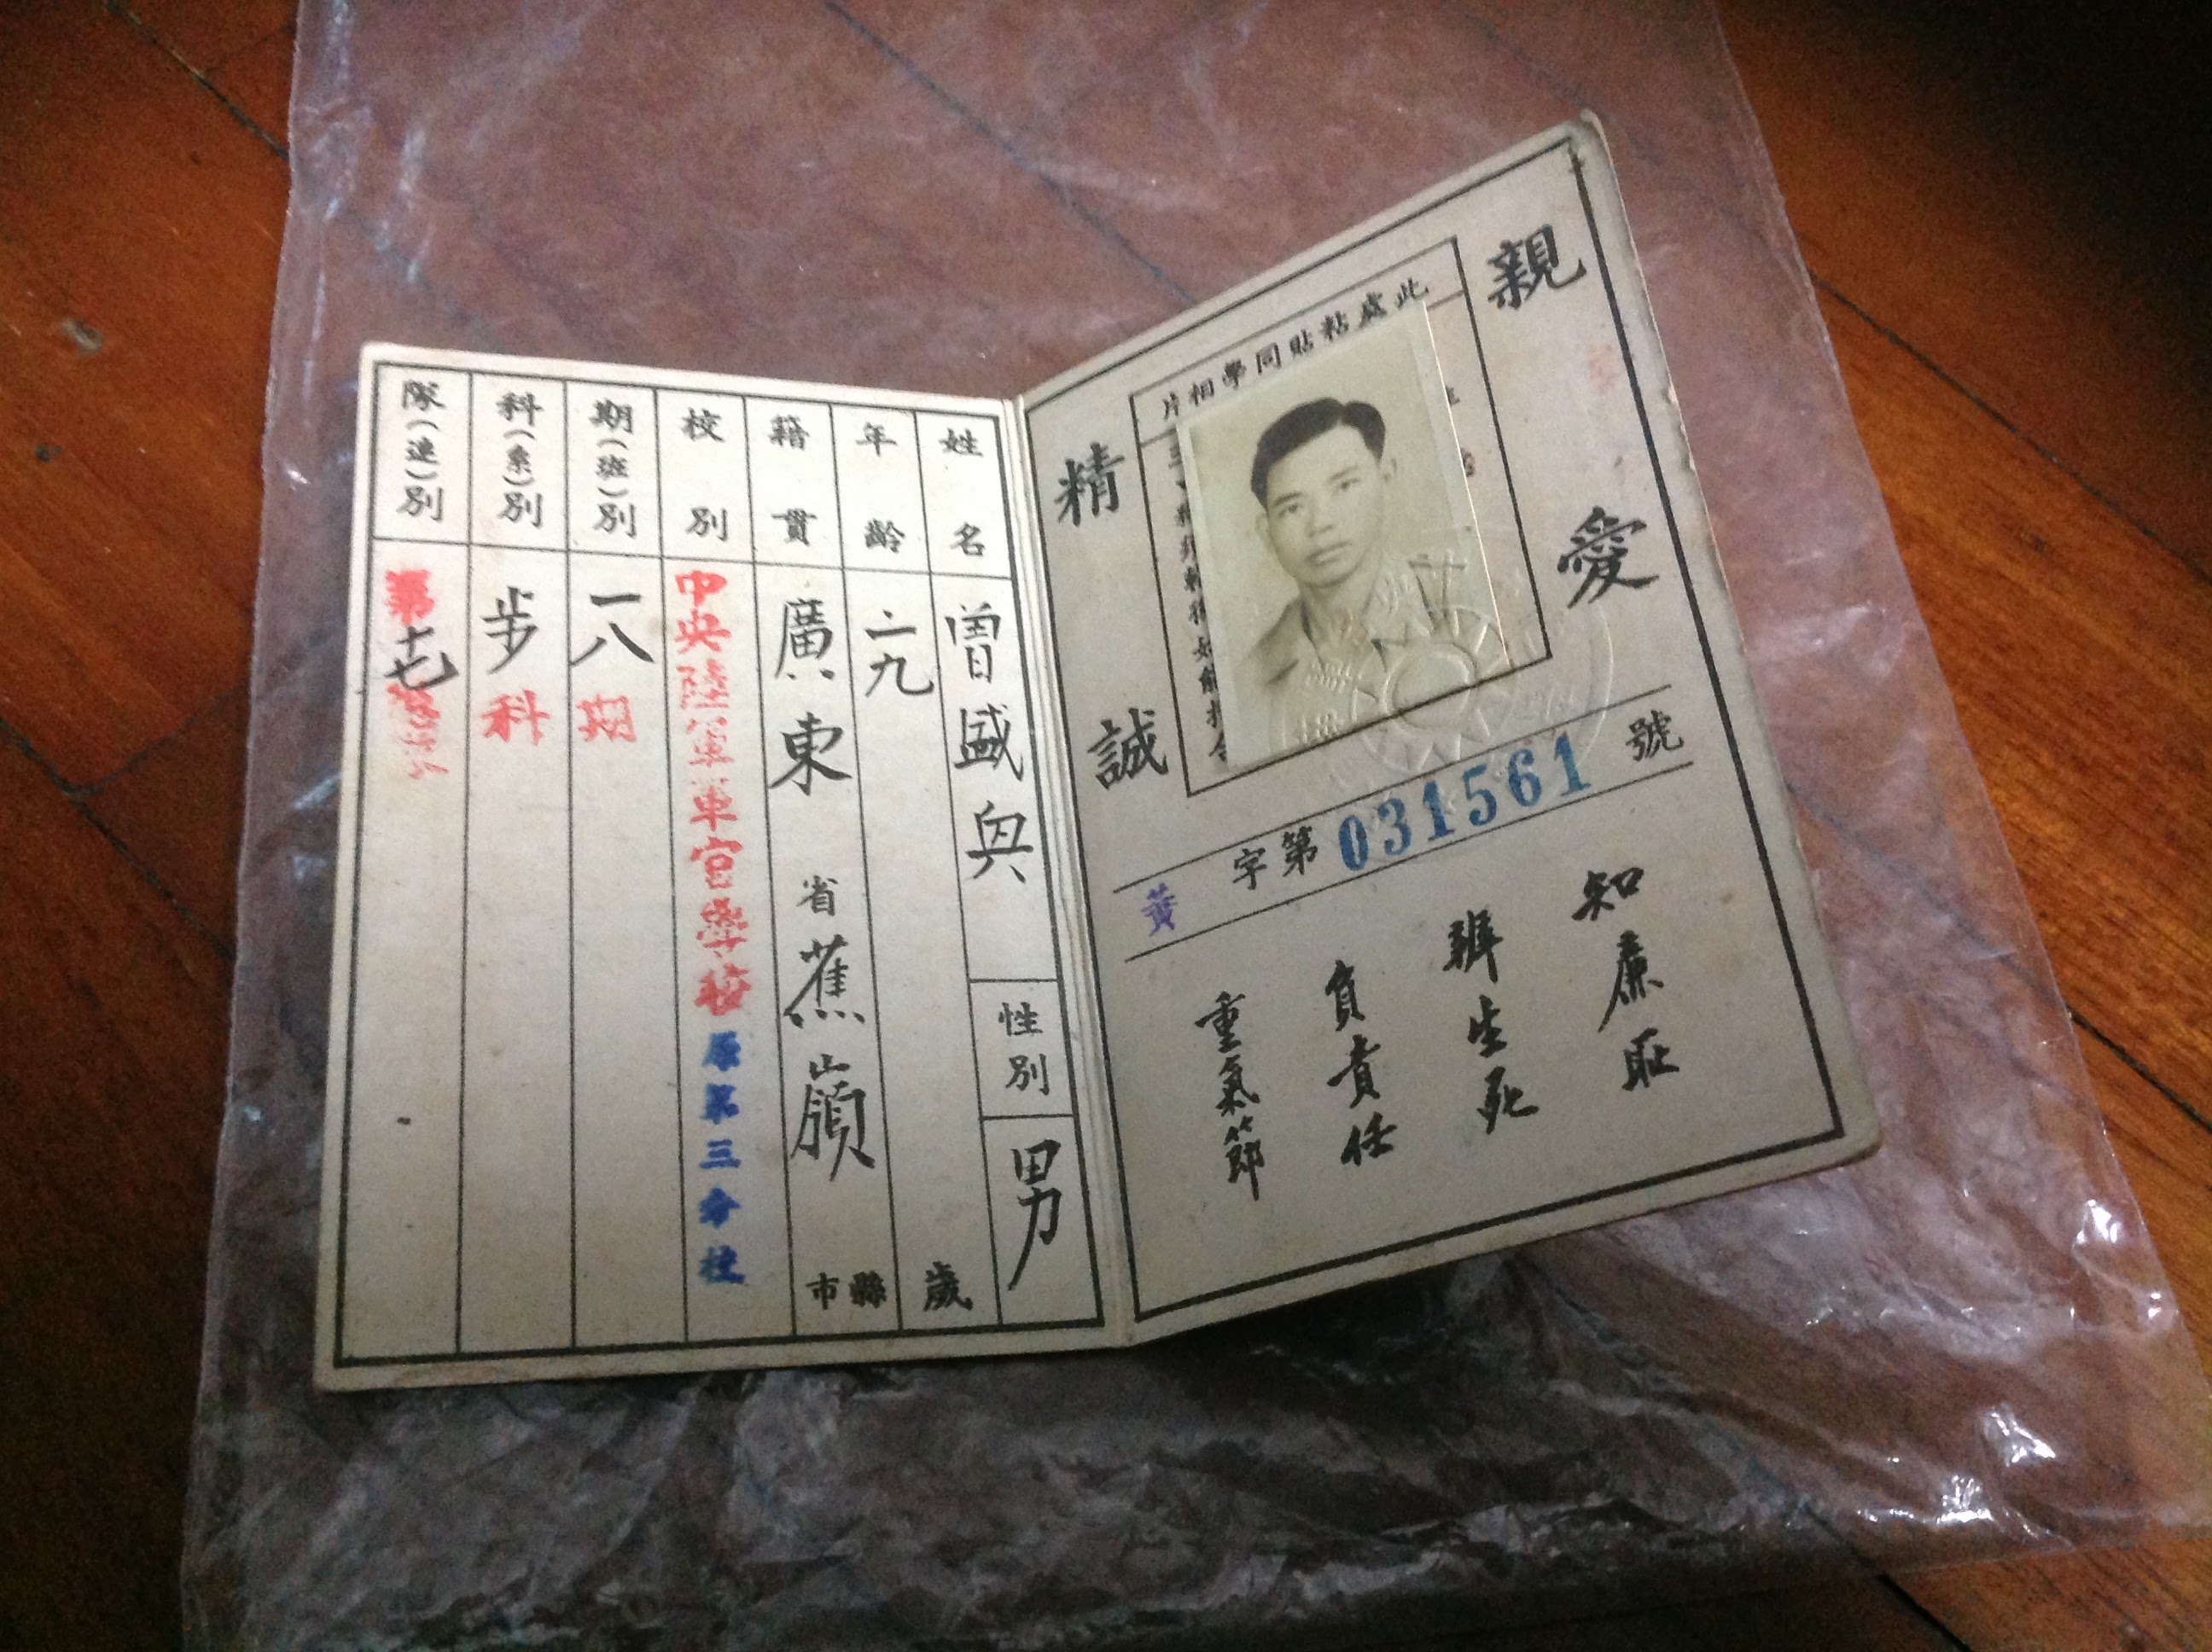 親愛
精誠
此處粘貼同學相片
黃字第031561號
知廉恥
辨生死
負責任
重氣節
姓名 曾盛興 性別 男
年齡 二九 歲
籍貫 廣東省蕉嶺縣市
校別 中央陸軍軍官學校原第三分校
期(班)別 一八期
科(系)別 步科
隊(連)別 第七